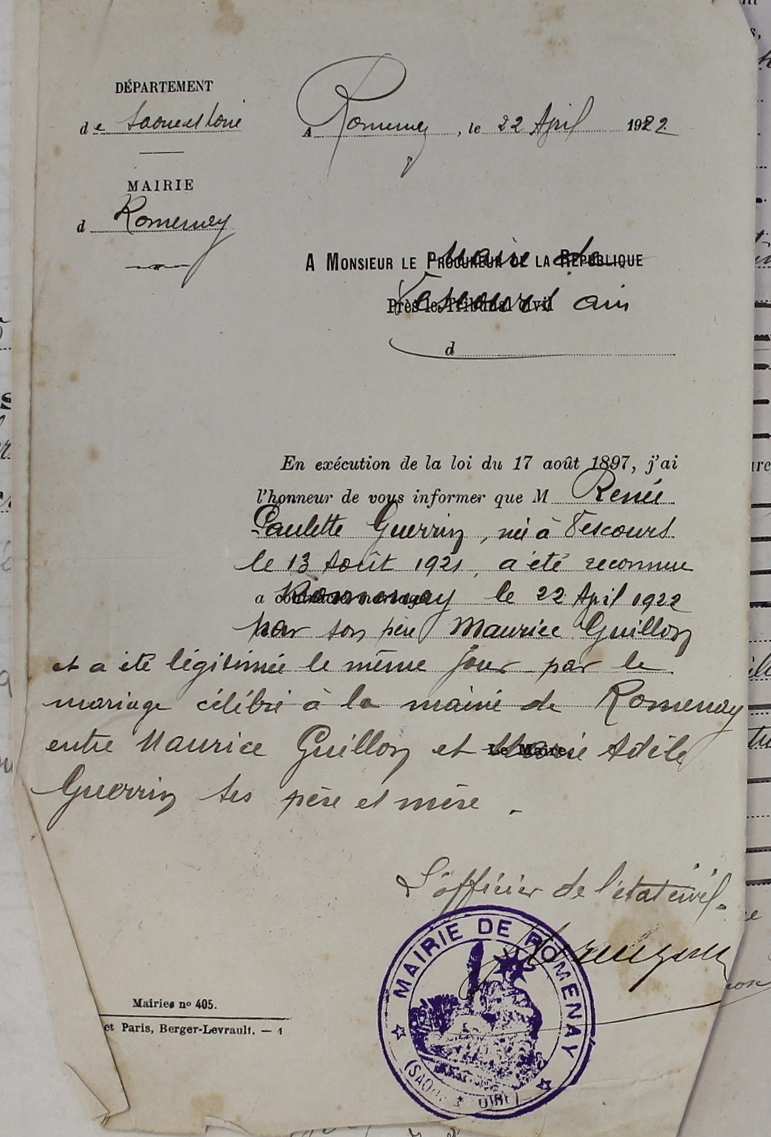 DÉPARTEMENT
de Saone et Loire
MAIRIE
d Romenay
A Romenay, le 22 April 1922
A MONSIEUR LE PROCUREUR DE LA RÉPUBLIQUE
Maire de
Près le Tribunal Civil
Vescours ain
d
En exécution de la loi du 17 août 1897, j'ai
l'honneur de vous informer que M Renée
Paulette Guerrin, née à Vescours
le 13 Août 1921, a été reconnue
a contracté mariage
Romenay le 22 April 1922
par son père Maurice Guillon
et a été légitimée le même jour par le
mariage célébré à la mairie de Romenay
entre Maurice Guillon et Marie Adèle
Le Maire
Guerrin ses père et mère.
L'officier de l'état civil.
MAIRIE DE ROMENAY
(SAONE & LOIRE)
Mairies nº 405.
et Paris, Berger-Levrault. — 1